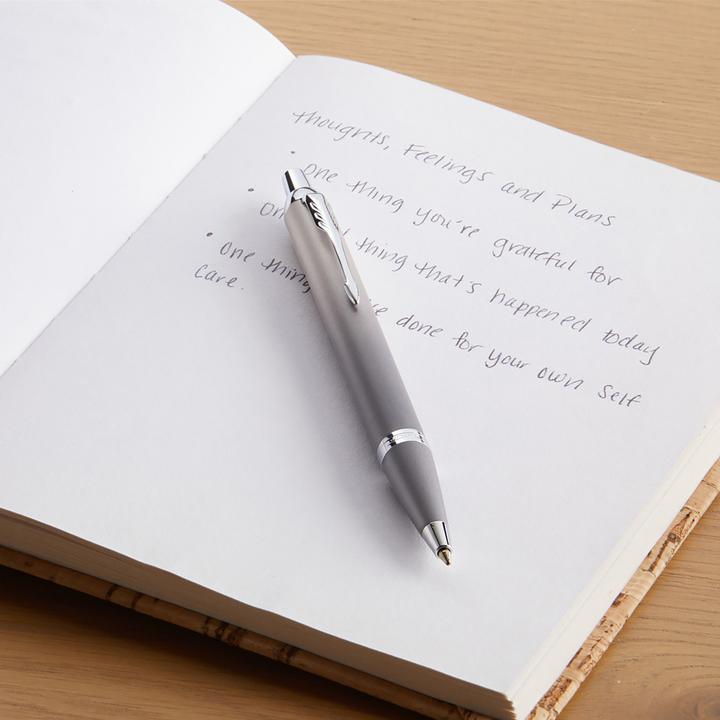 thoughts, Feelings and Plans
• One thing you're grateful for
• On thing that's happened today
• One thing ve done for your own self
care.